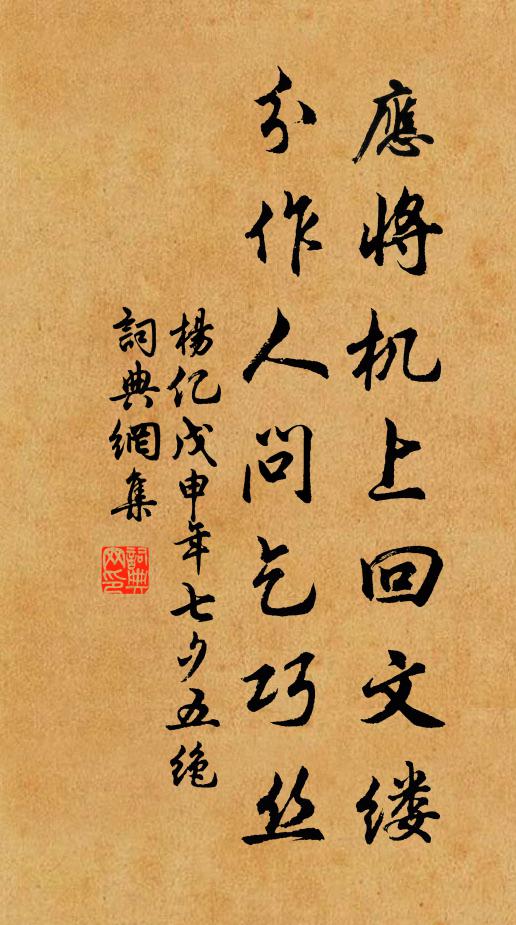 應將机上回文缕
分作人问乞巧丝
楊亿戊申年七夕五绝
詞典網集
詞典
网印